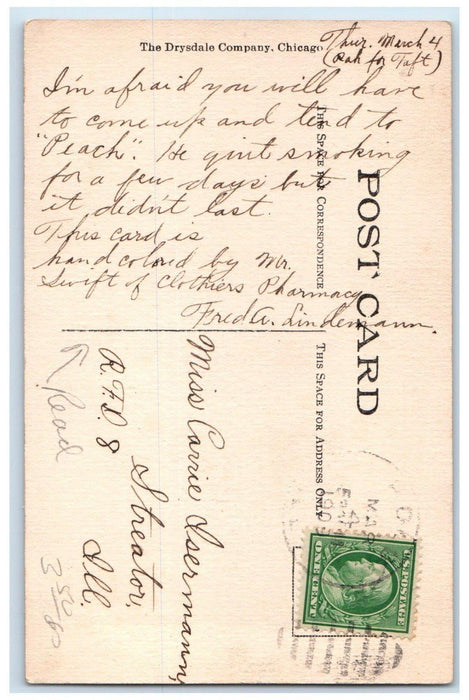 The Drysdale Company, Chicago
Thur. March 4
(Rah for Taft)
I'm afraid you will have
to come up and tend to
"Peach". He quit smoking
for a few days but
it didn't last.
This card is
hand colored by Mr.
Swift of Clothiers Pharmacy
Fred A. Lindemann.
THIS SPACE FOR CORRESPONDENCE
POST CARD
THIS SPACE FOR ADDRESS ONLY
Miss Carrie Isermann,
R.F.D. 8
Streator,
Ill.
Read
MAR
4
190
U.S. POSTAGE
ONE CENT